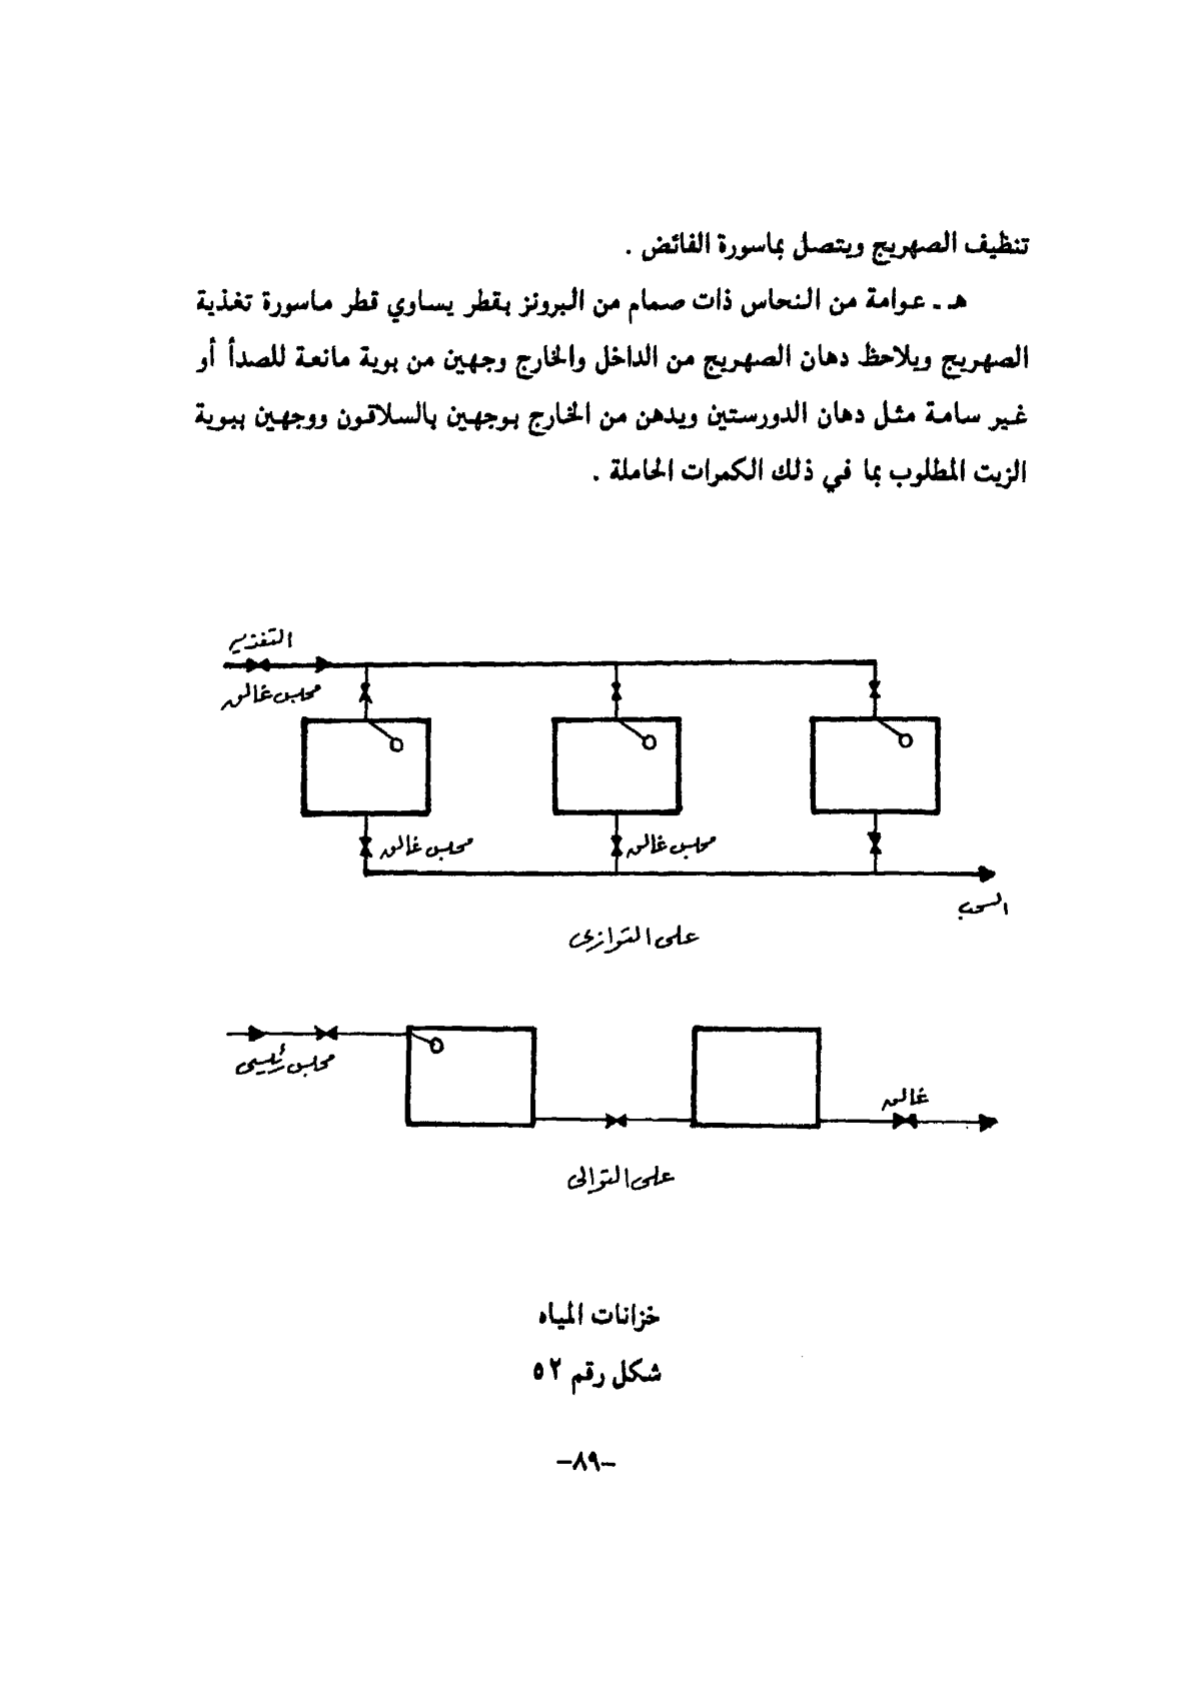 تنظيف الصهريج ويتصل بماسورة الفائض .
هـ ـ عوامة من النحاس ذات صمام من البرونز بقطر يساوي قطر ماسورة تغذية
الصهريج ويلاحظ دهان الصهريج من الداخل والخارج وجهين من بوية مانعة للصدأ أو
غير سامة مثل دهان الدورستين ويدهن من الخارج بوجهين بالسلاقون ووجهين ببوية
الزيت المطلوب بما في ذلك الكمرات الحاملة .
التغذيه
محابس غالق
محابس غالق
محابس غالق
السحب
على التوازى
محابس رئيسى
غالق
على التوالى
خزانات المياه
شكل رقم ٥٢
–٨٩–